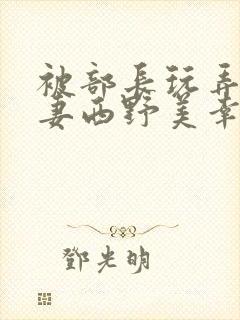 被部長玩弄
妻西野美幸
鄧光明